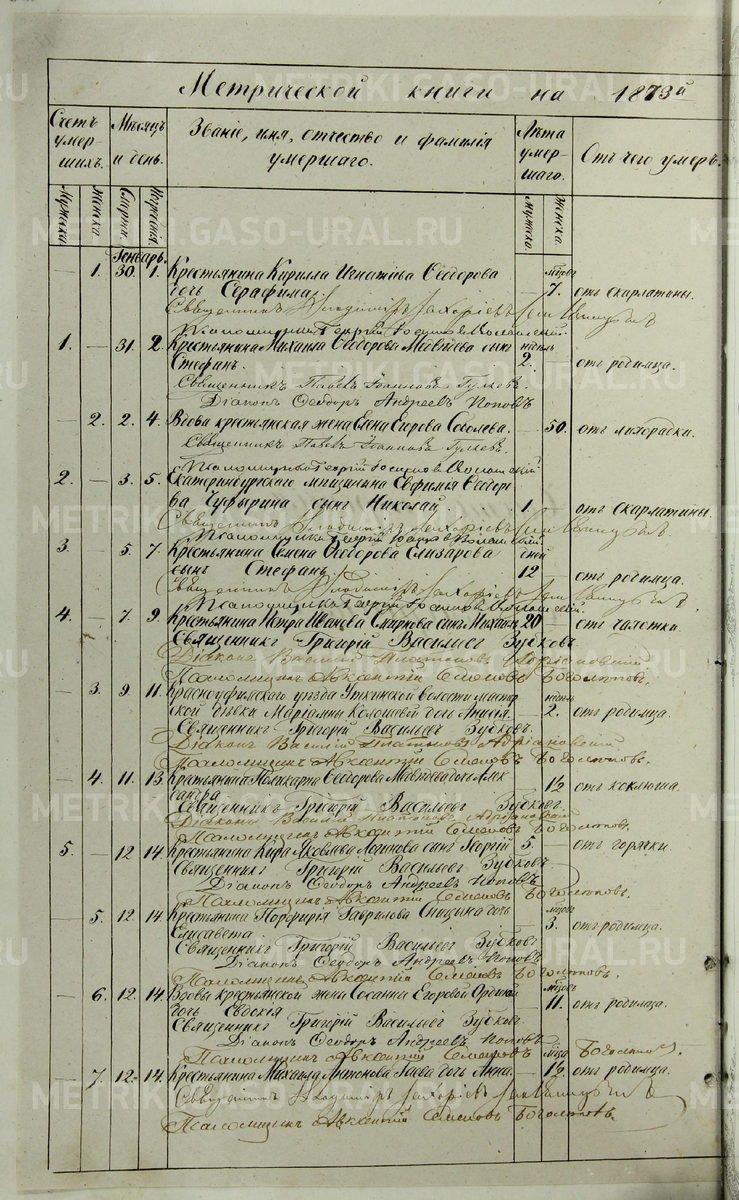 Метрической книги на 1873й
Счетъ умершихъ. Мѣсяцъ и день. Званіе, имя, отчество и фамилія умершаго. Лѣта умершаго. Отъ чего умеръ.
Мужеска. Женска. Смерти. Погребенія. Мужеска. Женска.
Январь.
— 1. 30. 1. Крестьянина Кирилла Игнатіева Ѳеодорова
дочь Серафима. — 7. отъ скарлатины.
Священникъ Владиміръ
Псаломщикъ Георгій
1. — 31. 2. Крестьянина Михаила Ѳеодорова Медвѣдева сынъ недѣль
Стефанъ. 2. отъ родимца.
Священникъ Павелъ Іоанновъ
Діаконъ Ѳеодоръ Андреевъ Поповъ
— 2. 2. 4. Вдова крестьянская жена Елена Егорова Соболева. — 50. отъ лихорадки.
Священникъ Павелъ Іоанновъ
Псаломщикъ Георгій
2. — 3. 5. Екатеринбургскаго мѣщанина Евфимія Ѳеодоро
ва Чуфырина сынъ Николай. 1. отъ скарлатины.
Священникъ Владиміръ
Псаломщикъ Георгій
3. 5. 7. Крестьянина Семена Ѳеодорова Елизарова дней
сынъ Стефанъ 12 отъ родимца.
Священникъ Владиміръ
Псаломщикъ Георгій
4. — 7. 9. Крестьянина Петра Иванова Смирнова сынъ Михаилъ 20 — отъ чахотки.
Священникъ Григорій Васильевъ Зубковъ.
Діаконъ Василій Платоновъ Адріановскій
Псаломщикъ Авксентій Семеновъ Боголюбовъ.
— 3. 9 11. Красноуфимскаго уѣзда Уткинской волости мастер недѣль
ской дѣвки Маріамны дочь Анисія. — 2. отъ родимца.
Священникъ Григорій Васильевъ Зубковъ.
Діаконъ Василій Платоновъ Адріановскій
Псаломщикъ Авксентій Семеновъ Боголюбовъ.
— 4. 11. 13. Крестьянина Поликарпа Ѳеодорова Медвѣдева дочь Алек
сандра 1½ отъ коклюша.
Священникъ Григорій Васильевъ Зубковъ.
Діаконъ Василій Платоновъ Адріановскій
Псаломщикъ Авксентій Семеновъ Боголюбовъ.
5. — 12 14. Крестьянина Кира Яковлева Логинова сынъ Георгій 5. — отъ горячки.
Священникъ Григорій Васильевъ Зубковъ.
Діаконъ Ѳеодоръ Андреевъ Поповъ
Псаломщикъ Авксентій Семеновъ Боголюбовъ.
— 5. 12. 14. Крестьянина Порфирія Гаврилова Спицына дочь
Елисавета — 3. отъ родимца.
Священникъ Григорій Васильевъ Зубковъ.
Діаконъ Ѳеодоръ Андреевъ Поповъ
Псаломщикъ Авксентій Семеновъ Боголюбовъ.
— 6. 12. 14. Вдовы крестьянской жены Сосанны Егоровой
дочь Евдокія — 11. отъ родимца.
Священникъ Григорій Васильевъ Зубковъ.
Діаконъ Ѳеодоръ Андреевъ Поповъ
Псаломщикъ Авксентій Семеновъ Боголюбовъ.
— 7. 12. 14. Крестьянина Михаила Антонова дочь Анна. — 1½ отъ родимца.
Священникъ Владиміръ
Псаломщикъ Авксентій Семеновъ Боголюбовъ.
METRIKI.GASO-URAL.RU